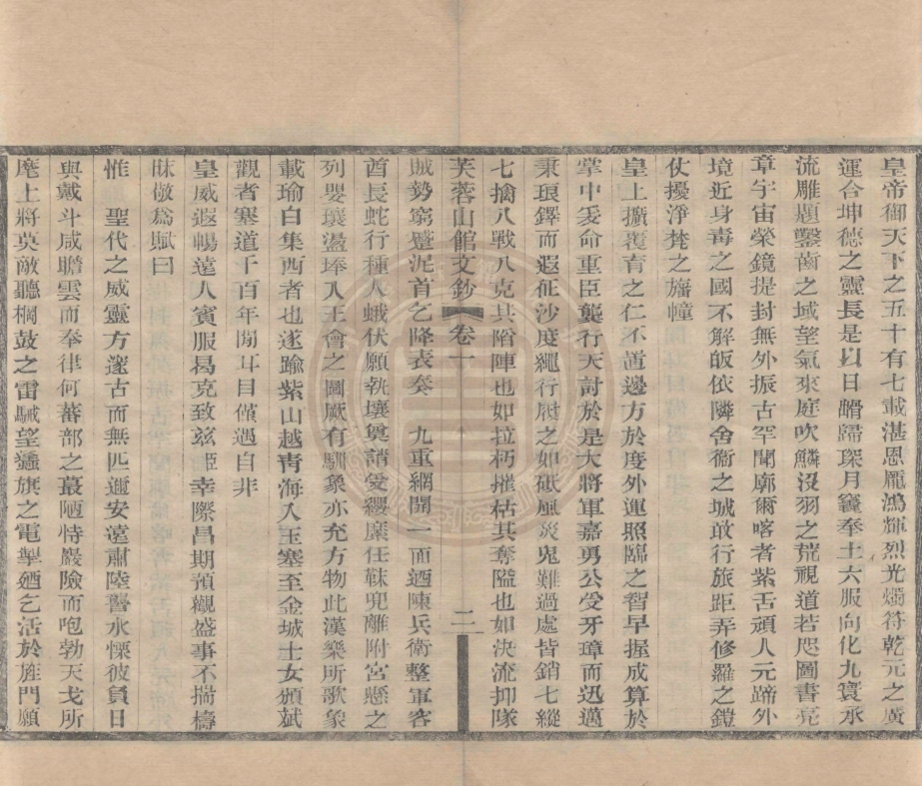 皇帝御天下之五十有七載湛恩龐鴻輝烈光燭符乾元之廣
運合坤德之靈長是以日䐉歸琛月竁奉土六服向化九寰承
流雕題鑿齒之域望氣來庭吹鱗沒羽之荒視道若咫圖書亮
章宇宙榮鏡提封無外振古罕聞廓爾喀者紫舌頑人元蹄外
境近身毒之國不解皈依隣舍衞之城敢行旅距弄修羅之鎧
仗擾淨梵之旛幢
皇上擴覆育之仁不遺邊方於度外運照臨之智早握成算於
掌中爰命重臣襲行天討於是大將軍嘉勇公受牙璋而迅邁
秉琅鐸而遐征沙度繩行屍之如砥風災鬼難過處皆銷七縱
七擒八戰八克其陷陣也如拉朽摧枯其奪隘也如決流抑隊
芙蓉山館文鈔 卷十 二
賊勢窮蹙泥首乞降表奏 九重網開一面迺陳兵衛整軍容
酋長蛇行種人蛾伏願執壤奠請受纓縻任靺兜離附宮懸之
列嬰瓌盪琫入王會之圖厥有馴象亦充方物此漢樂所歌象
載瑜白集西者也遂踰紫山越靑海入玉塞至金城士女頒斌
觀者塞道千百年間耳目僅遇自非
皇威遐暢遠人賓服曷克致茲 幸際昌期預觀盛事不揣檮
昧敬爲賦曰
惟 聖代之威靈方邃古而無匹邇安遠肅陸讋水慄彼員日
與戴斗咸瞻雲而奉律何蕃部之蕞陋恃嚴險而咆勃天戈所
麾上將英敵聽棡鼓之雷駴望蠭旗之電掣廼乞活於旌門願